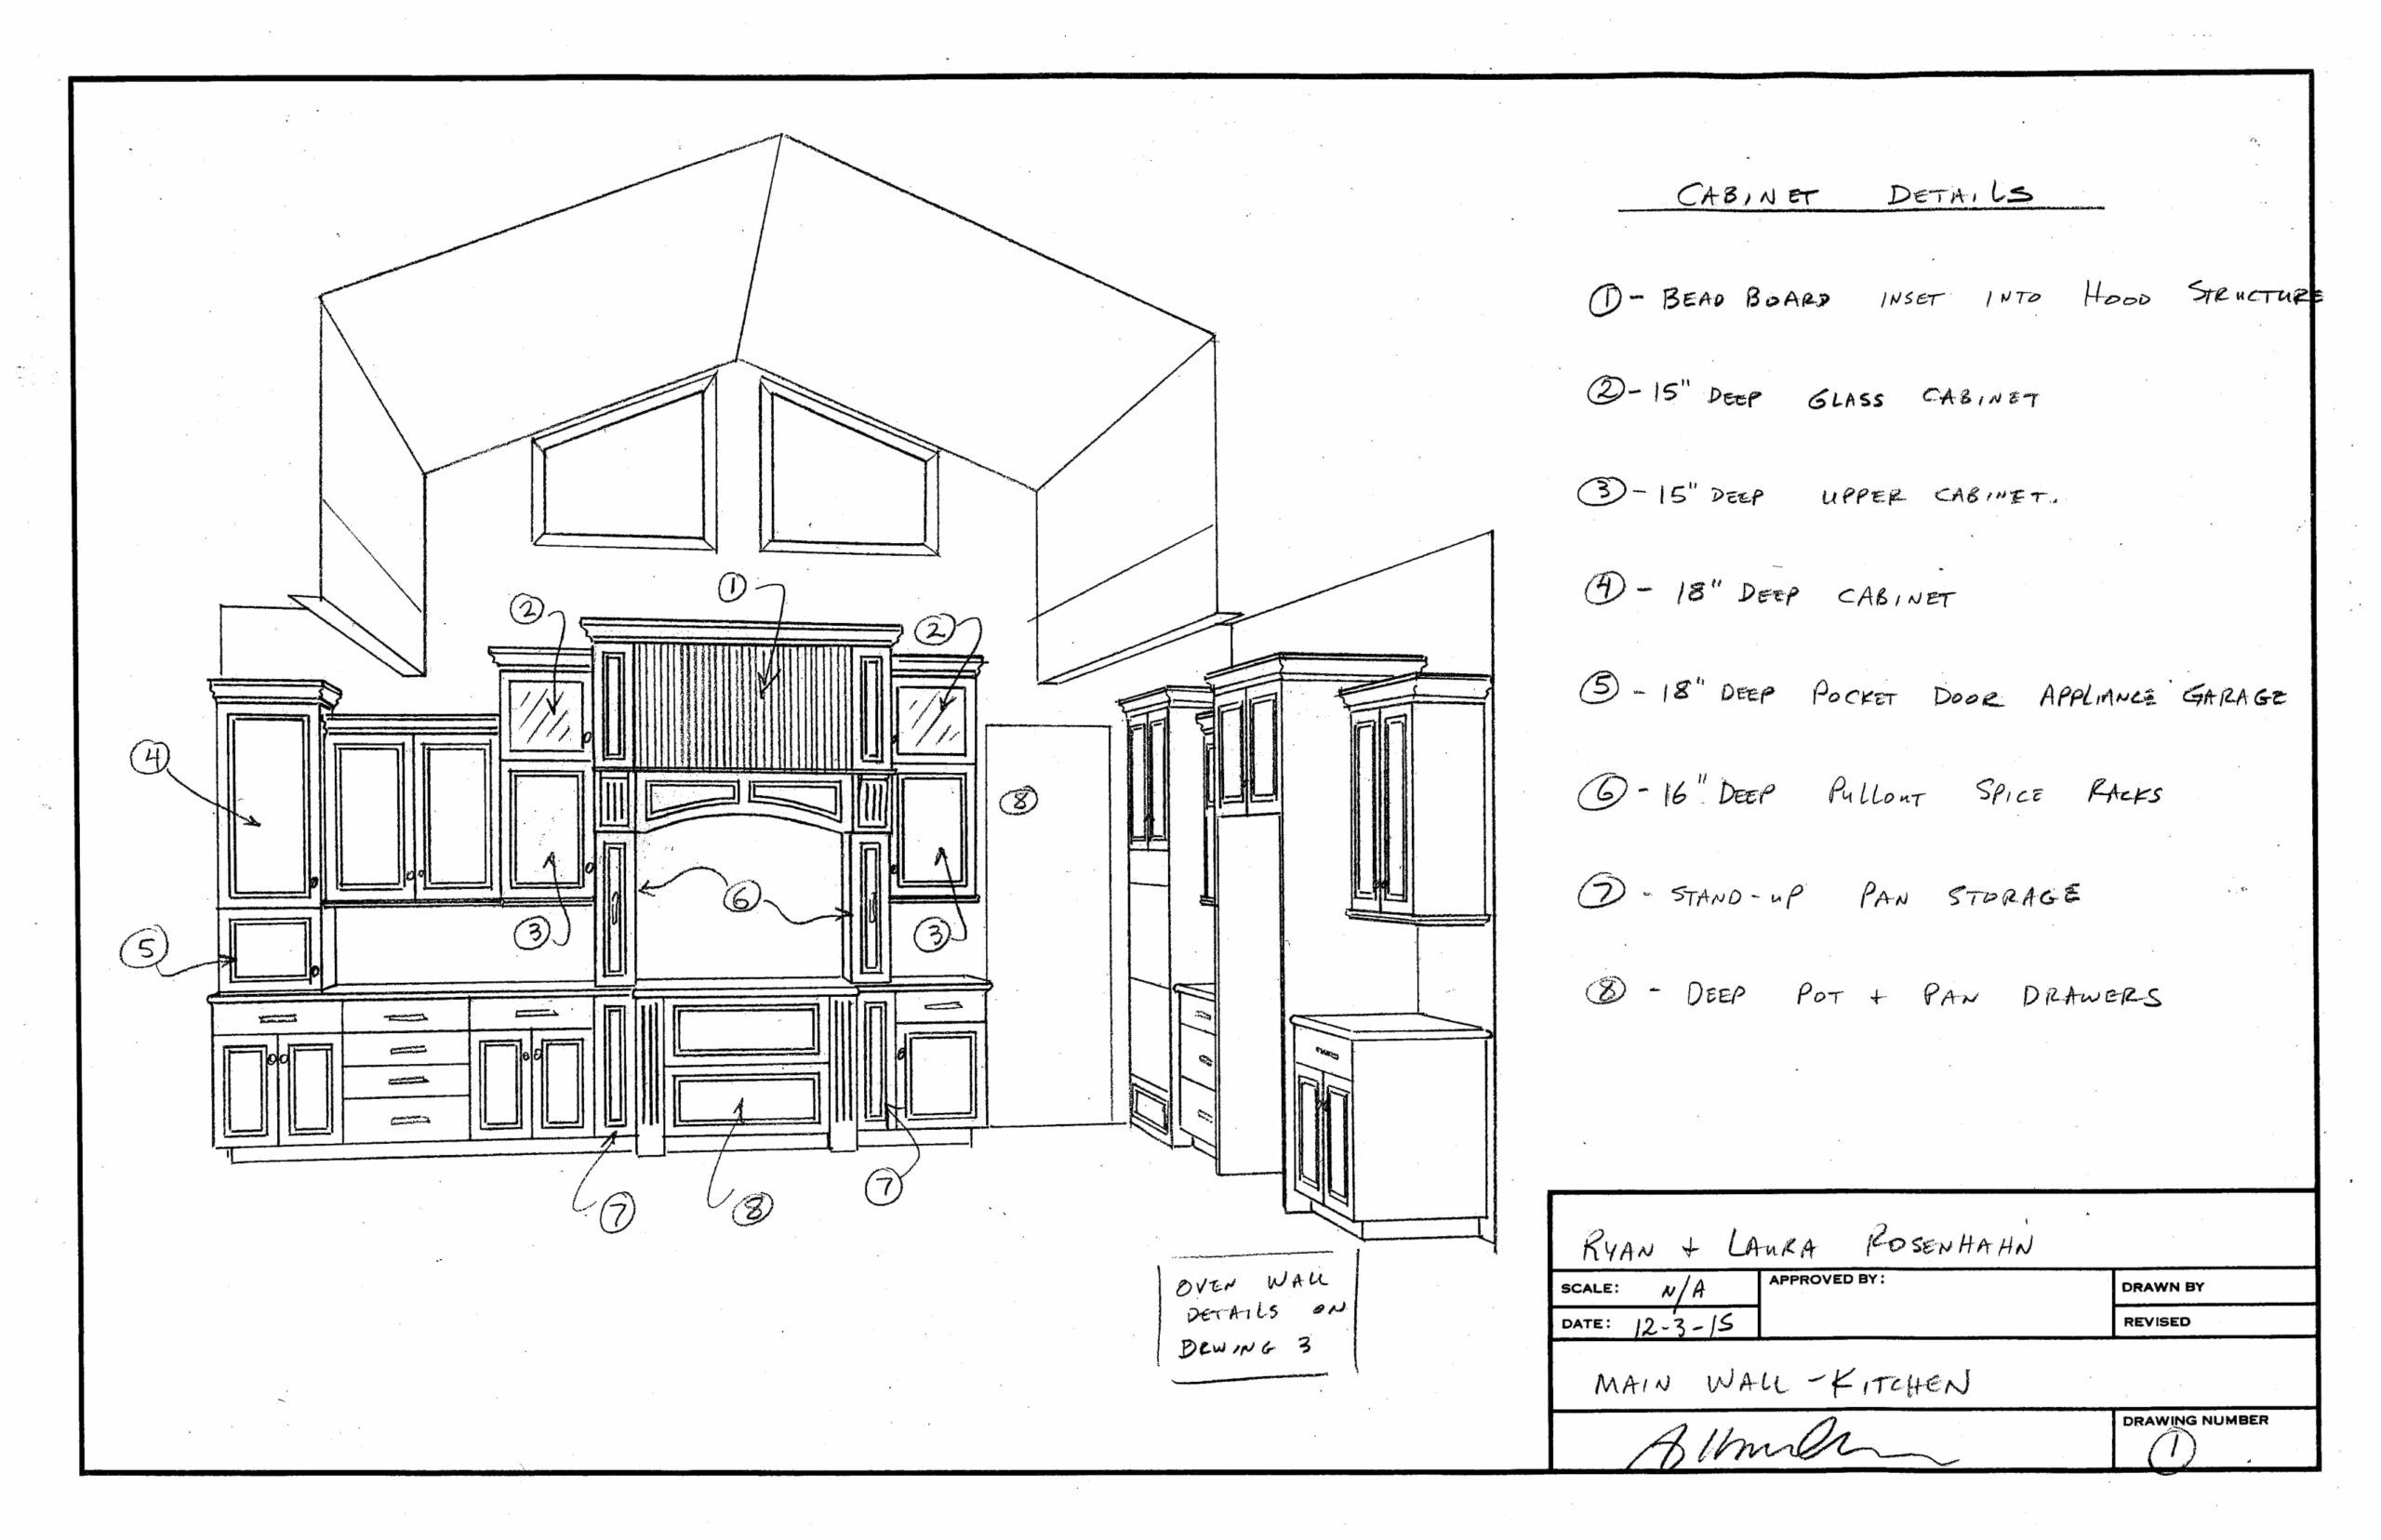 CABINET DETAILS
① - BEAD BOARD INSET INTO HOOD STRUCTURE
② - 15" DEEP GLASS CABINET
③ - 15" DEEP UPPER CABINET.
④ - 18" DEEP CABINET
⑤ - 18" DEEP POCKET DOOR APPLIANCE GARAGE
⑥ - 16" DEEP PULLOUT SPICE RACKS
⑦ - STAND-UP PAN STORAGE
⑧ - DEEP POT + PAN DRAWERS
①
②
②
④
⑧
⑥
③
③
⑤
⑦
⑧
⑦
OVEN WALL
DETAILS ON
DRWING 3
RYAN + LAURA ROSENHAHN
SCALE: N/A
APPROVED BY:
DRAWN BY
DATE: 12-3-15
REVISED
MAIN WALL - KITCHEN
DRAWING NUMBER
①